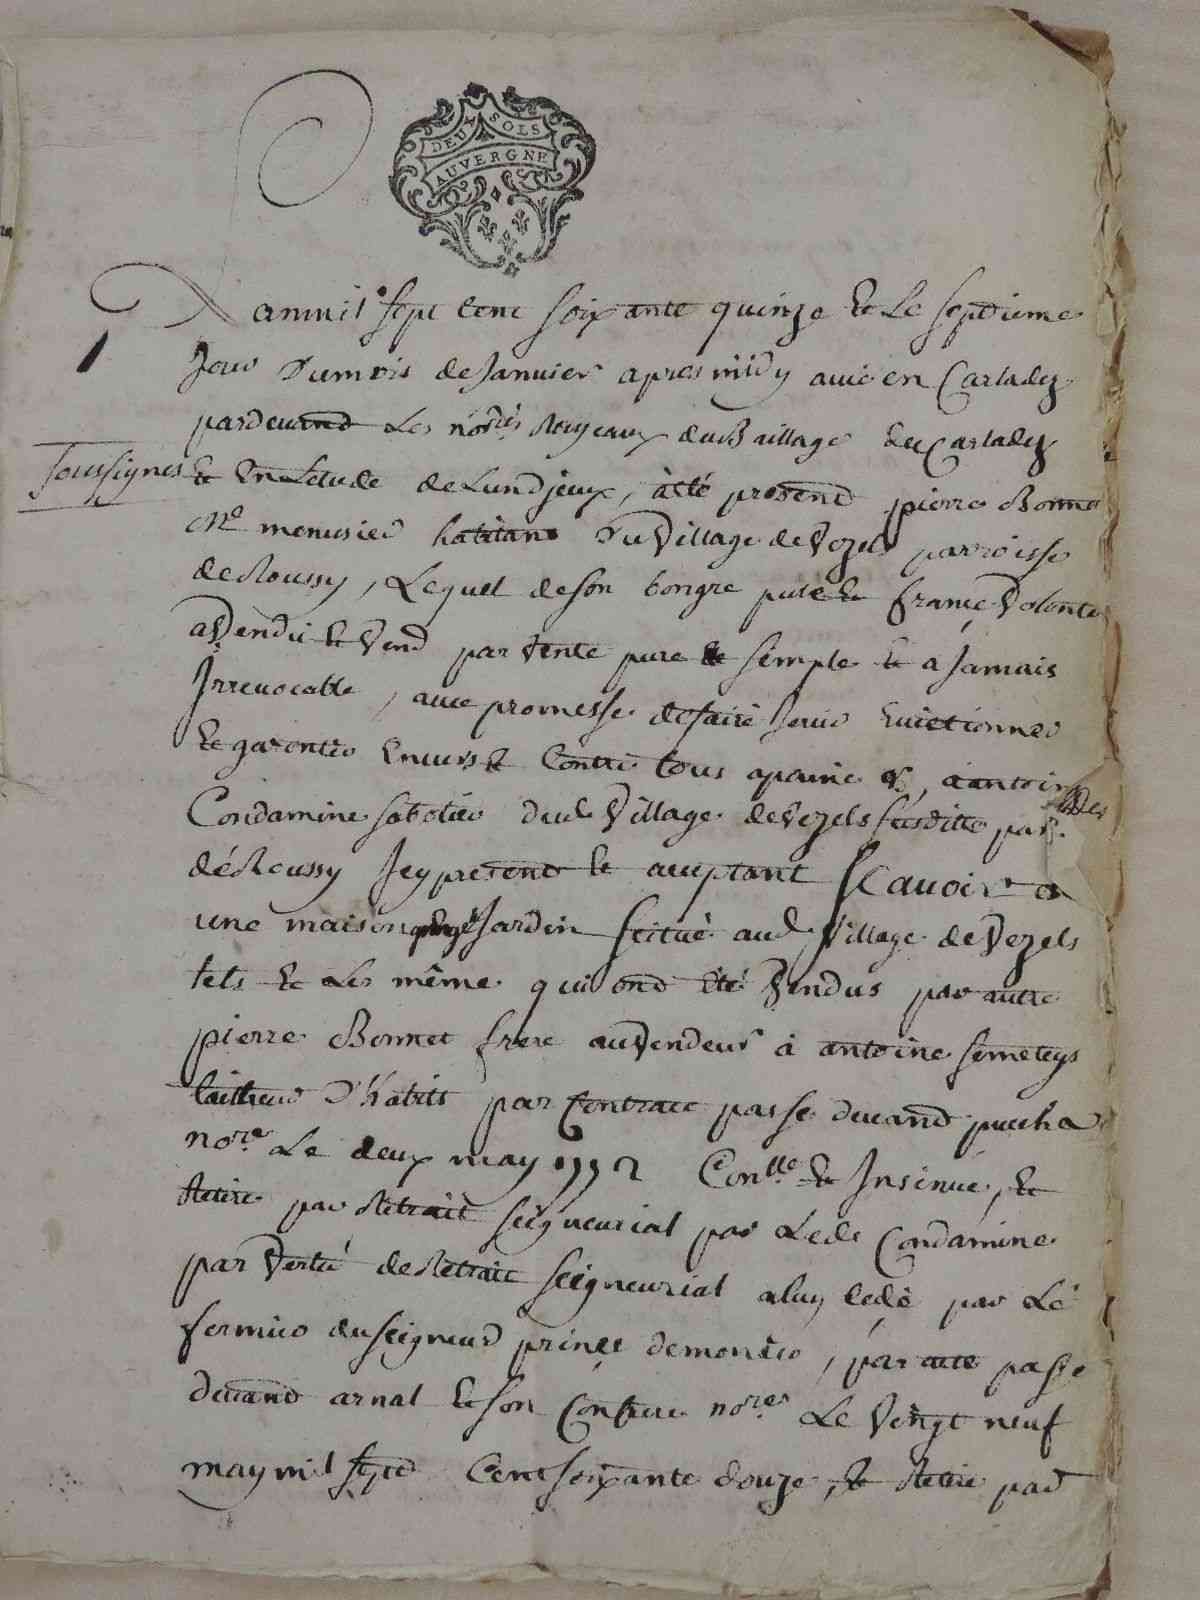 DEUX SOLS
AUVERGNE
Lan mil sept cent soixante quinze & Le septieme
Jour Du mois de Janvier apres midy a vic en Carladez
pardevand Les nores Royeaux du Bailliage de Carladez
soussignes & En Letude de Lun d'jeux, a été present pierre Bonnet
Me menusier habitant Du Village de Vezels parroisse
de Roussy, Lequel de son bongre pure & franche Volonte
a Vendu & Vend par Vente pure & simple & a Jamais
Irrevocable, avec promesse de faire Jouir Evictionner
& garentir Envers & Contre tous a paine &, a antoine
Condamine sabotier dud. Village de Vezels susditte par.
dé Roussy Jcy present & acceptant Scavoir est
une maison & Jardin scitué aud. Village de Vezels
tels & Les même qui ond été Vendus par autre
pierre Bonnet frere au Vendeur à antoine semeteys
tailheur D'habits par Contract passe devand puecha
nore Le deux may 1772 Conllé & Insinué, &
Retiré par Retrait seigneurial par Led. Condamine
par Vertu de Retrait seigneurial a luy cedé par Le
fermier du seigneur prince de monaco, par acte passe
devand arnal & son Confrere nores Le Vingt neuf
may mil sept Cent soixante douze, & Retiré par